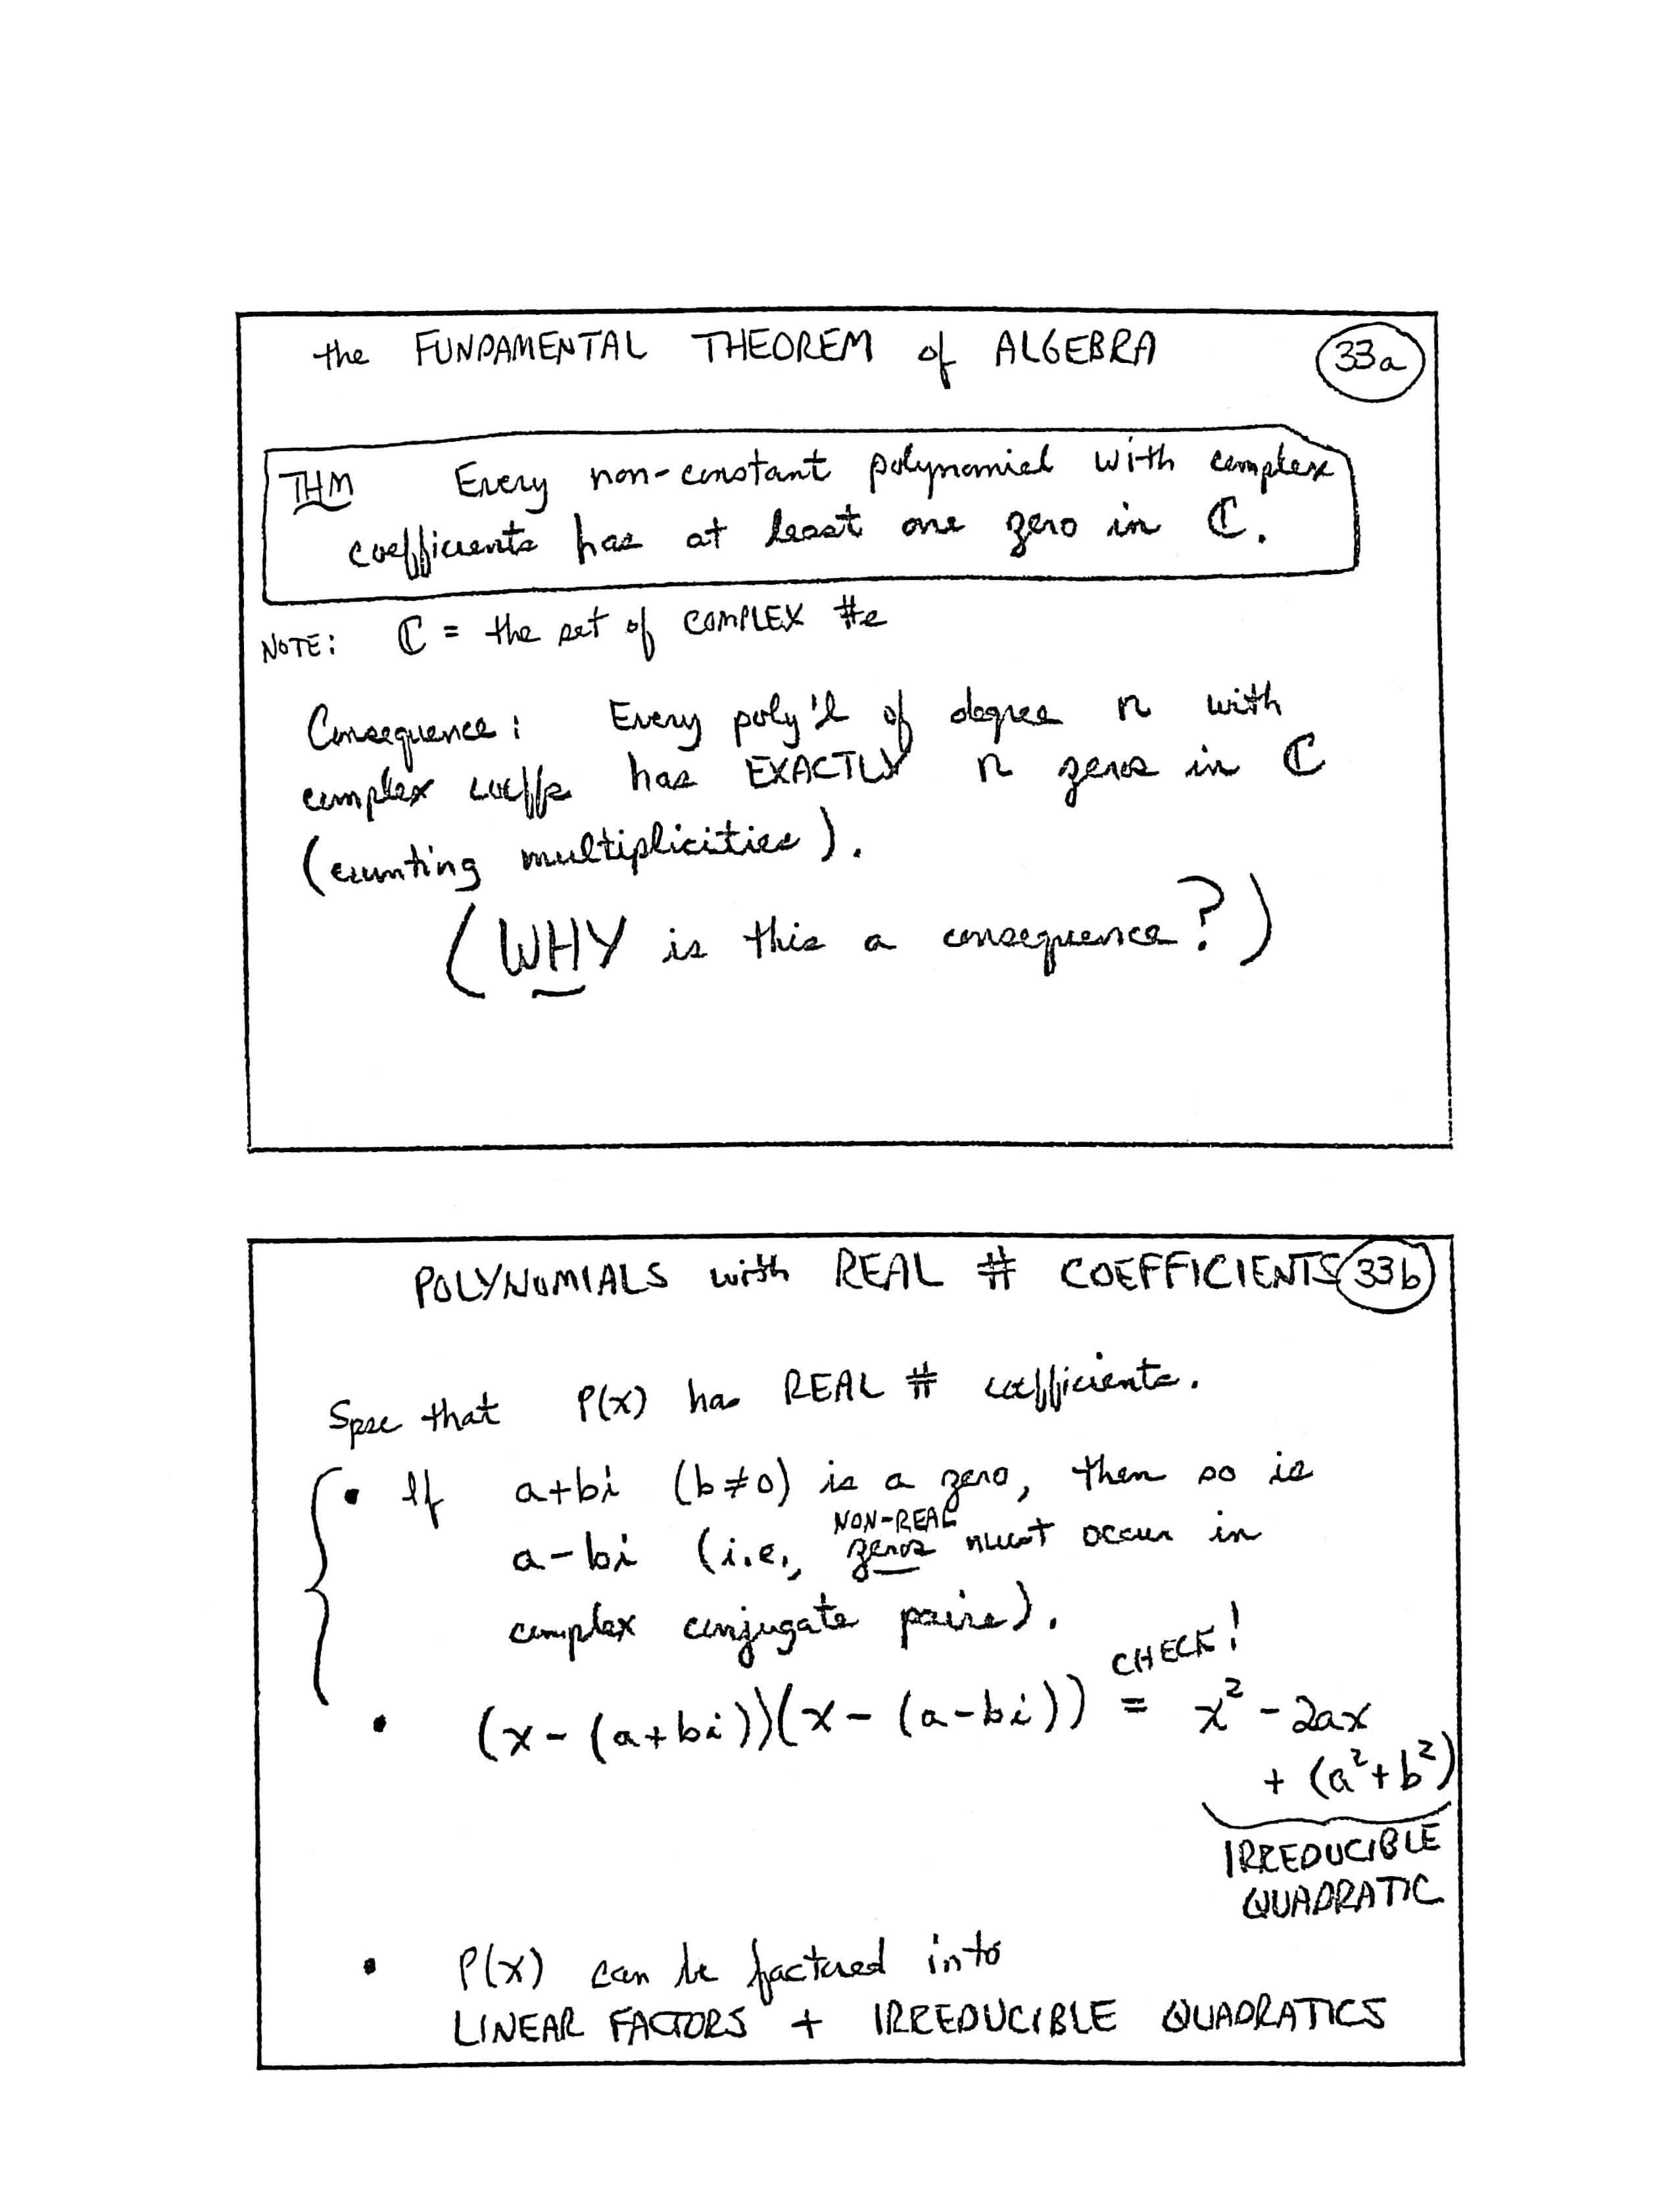 the FUNDAMENTAL THEOREM of ALGEBRA 33a
THM Every non-constant polynomial with complex
coefficients has at least one zero in ℂ.
NOTE: ℂ = the set of COMPLEX #s
Consequence: Every poly'l of degree n with
complex coeffs has EXACTLY n zeros in ℂ
(counting multiplicities).
(WHY is this a consequence?)
POLYNOMIALS with REAL # COEFFICIENTS 33b
Spse that P(x) has REAL # coefficients.
• If a+bi (b≠0) is a zero, then so is
a-bi (i.e., NON-REAL zeros must occur in
complex conjugate pairs).
CHECK!
• (x-(a+bi))(x-(a-bi)) = x² - 2ax
+ (a²+b²)
IRREDUCIBLE
QUADRATIC
• P(x) can be factored into
LINEAR FACTORS + IRREDUCIBLE QUADRATICS